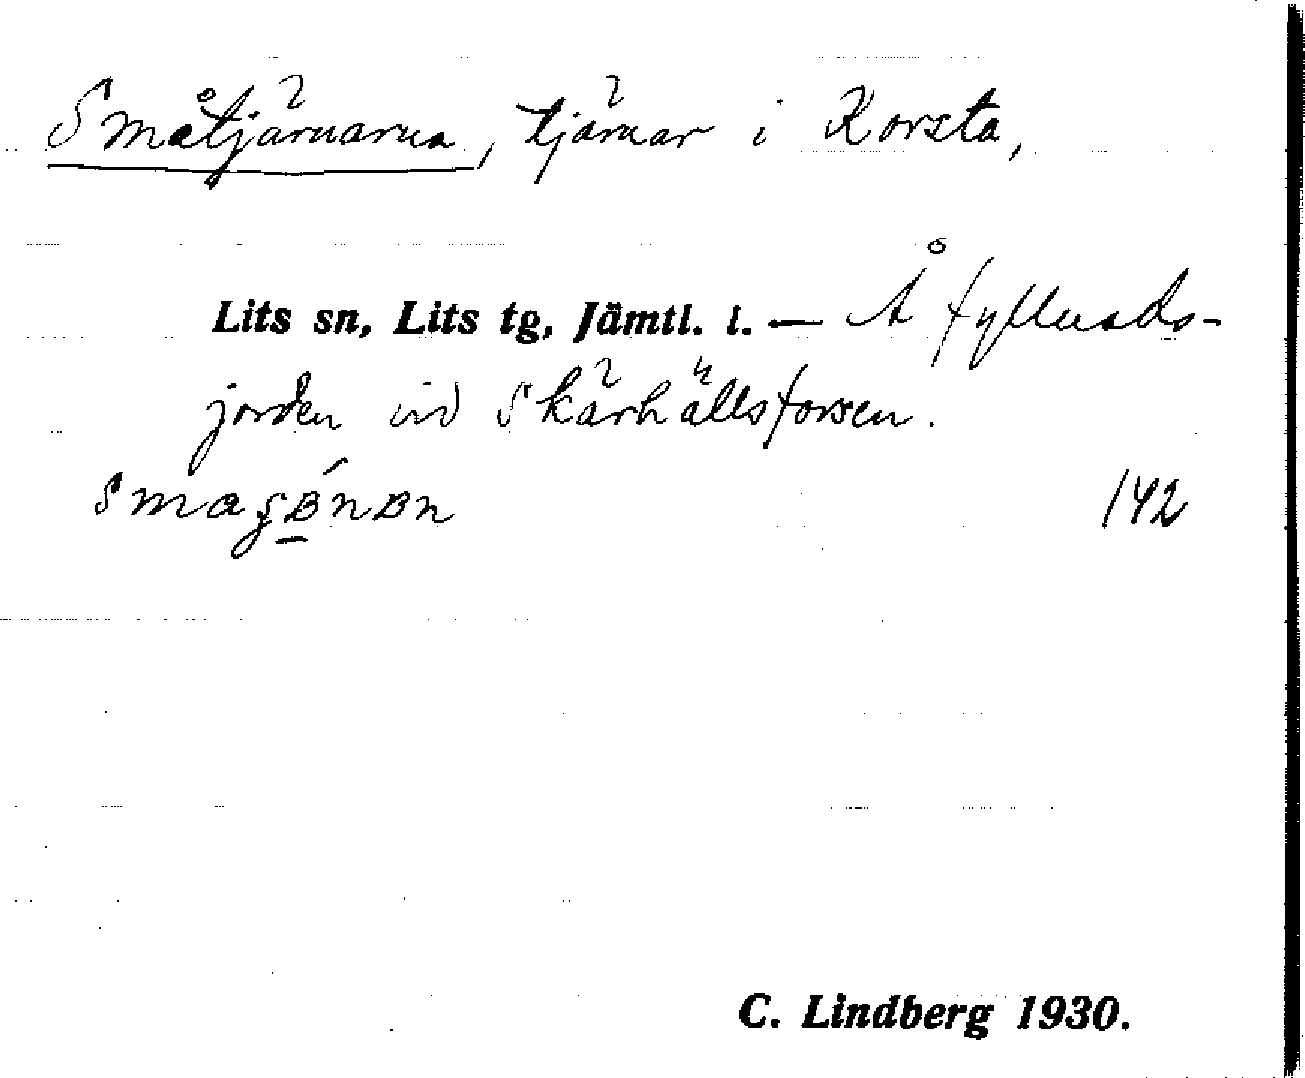 Småtjärnarna, tjärnar i Korsta,
Lits sn, Lits tg, Jämtl. l. — Å fyllnads-
jorden vid Skärhällsforsen.
142
C. Lindberg 1930.